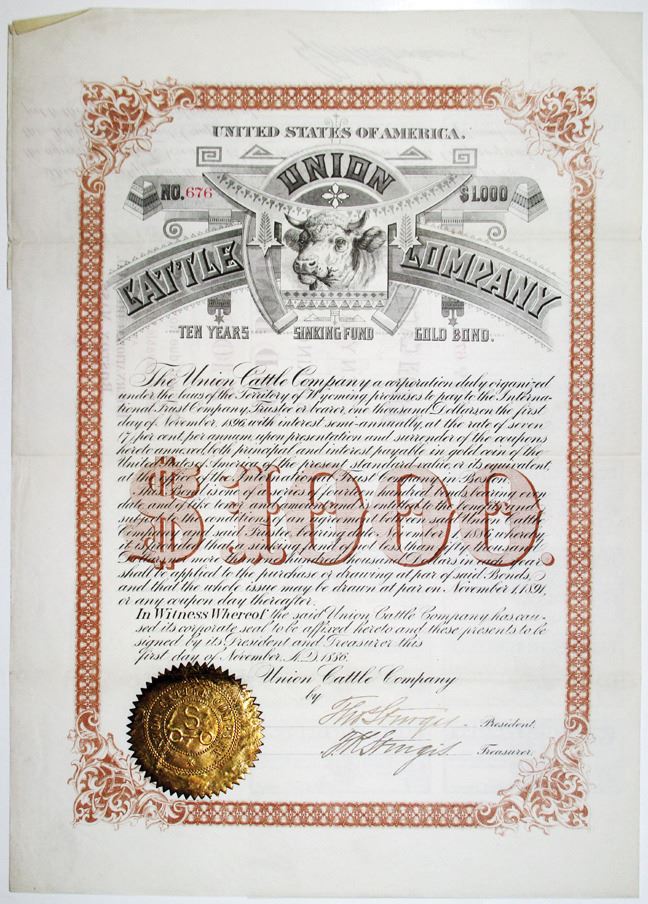 UNITED STATES OF AMERICA.
NO. 676
UNION
$1,000
CATTLE
COMPANY
TEN YEARS
SINKING FUND
GOLD BOND.
The Union Cattle Company a corporation duly organized
under the laws of the Territory of Wyoming promises to pay to the Interna-
tional Trust Company, Trustee or bearer, one thousand Dollars on the first
day of November, 1896 with interest semi-annually, at the rate of seven
(7) per cent, per annum, upon presentation and surrender of the coupons
hereto annexed, both principal and interest payable in gold coin of the
United States of America of the present standard value, or its equivalent,
at the office of the International Trust Company in Boston.
This Bond is one of a series of fourteen hundred bonds bearing even
date and of like tenor and amount and is entitled to the
subject to the conditions of an agreement between said Union Cattle
Company and said Trustee bearing date November 1, 1886, whereby
it is
Dollars nor more than thousand Dollars in each year
shall be applied to the purchase or drawing at par of said Bonds,
and that the whole issue may be drawn at par on November 1, 1891,
or any coupon day thereafter.
In Witness Whereof the said Union Cattle Company has cau-
sed its corporate seal to be affixed hereto and these presents to be
signed by its President and Treasurer this
first day of November, A.D. 1886.
$1000.
Union Cattle Company
by
Thos Sturgis President.
F K Sturgis Treasurer.